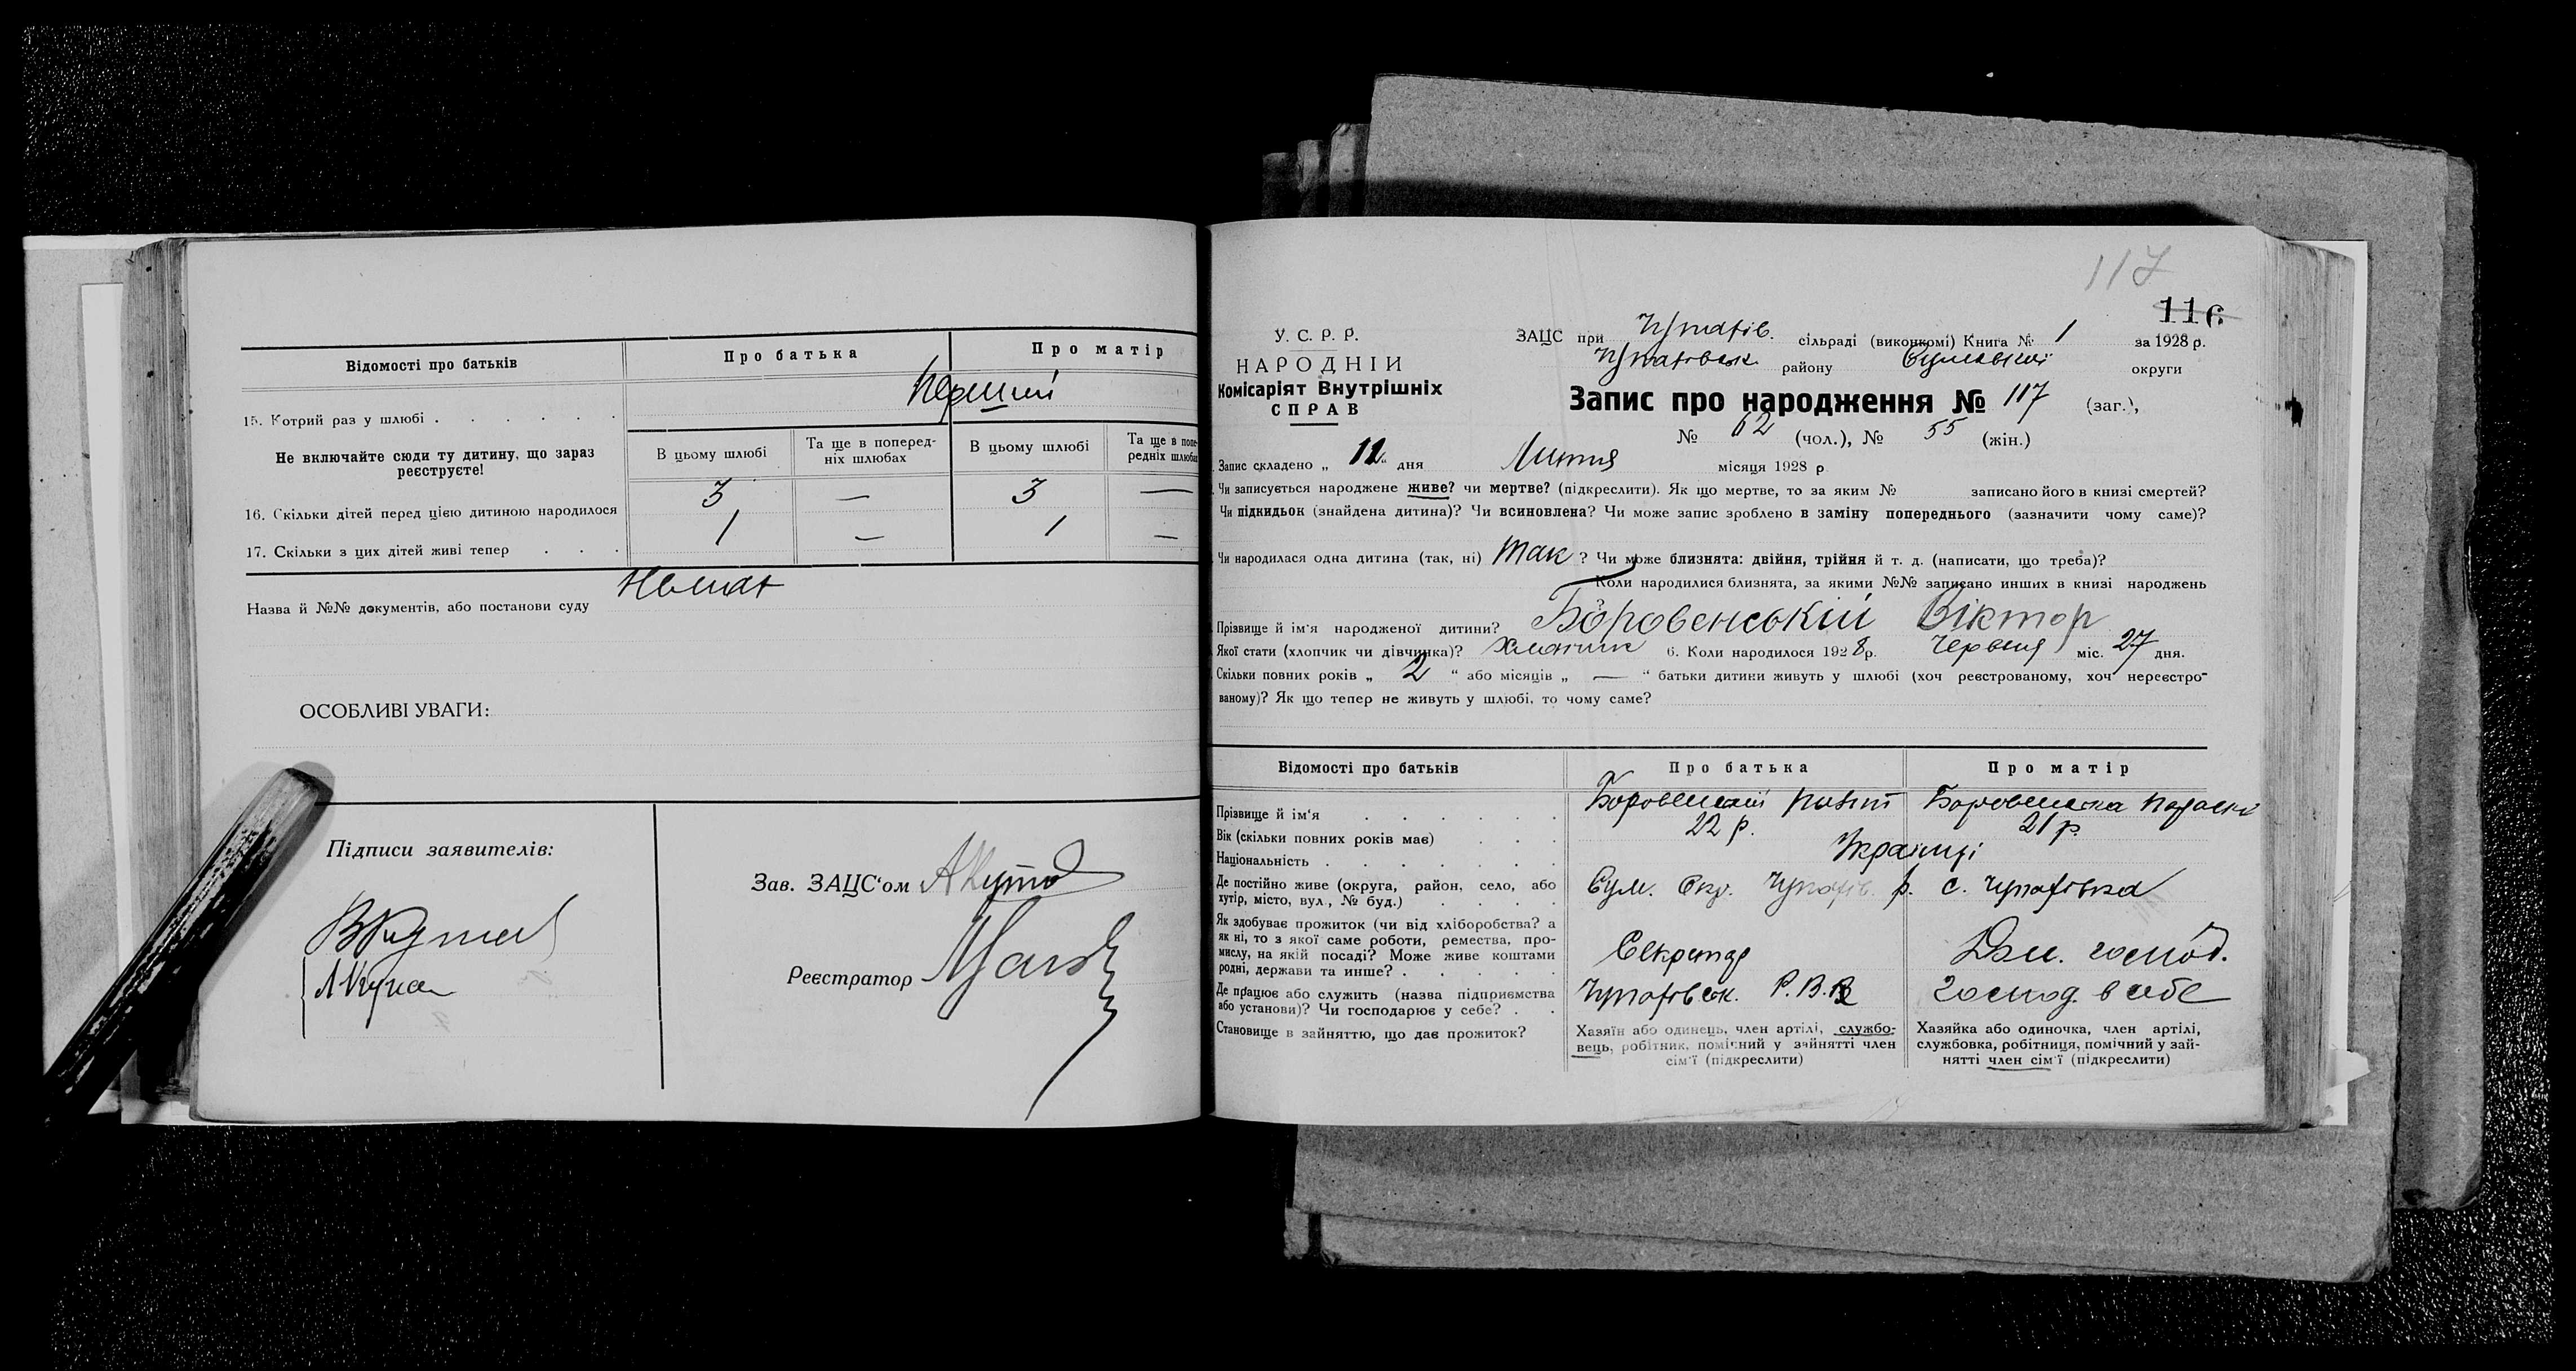 Відомості про батьків
Про батька
Про матір
15. Котрий раз у шлюбі . . . . . .
Перший
Не включайте сюди ту дитину, що зараз реєструєте!
В цьому шлюбі
Та ще в поперед-
ніх шлюбах
В цьому шлюбі
Та ще в попе-
редніх шлюбах
16. Скільки дітей перед цією дитиною народилося
3 — 3 —
17. Скільки з цих дітей живі тепер . . .
1 — 1 —
Назва й №№ документів, або постанови суду
ОСОБЛИВІ УВАГИ:
Підписи заявителів:
Зав. ЗАЦС'ом
Реєстратор
117
116
У. С. Р. Р.
НАРОДНІЙ
Комісаріят Внутрішніх
СПРАВ
ЗАЦС при Чупахів. сільраді (виконкомі) Книга № 1 за 1928 р.
Чупахівськ. району Сумської округи
Запис про народження № 117 (заг.),
№ 62 (чол.), № 55 (жін.)
Запис складено „ 12 " дня Липня місяця 1928 р
Чи записується народжене живе? чи мертве? (підкреслити). Як що мертве, то за яким № записано його в книзі смертей?
Чи підкидьок (знайдена дитина)? Чи всиновлена? Чи може запис зроблено в заміну попереднього (зазначити чому саме)?
Чи народилася одна дитина (так, ні) Так ? Чи може близнята: двійня, трійня й т. д. (написати, що треба)?
Коли народилися близнята, за якими №№ записано инших в книзі народжень
?
Прізвище й ім'я народженої дитини? Боровенський Віктор
Якої стати (хлопчик чи дівчинка)? Хлопчик 6. Коли народилося 1928 р. Червня міс. 27 дня.
Скільки повних років „ 2 " або місяців „ — " батьки дитини живуть у шлюбі (хоч реєстрованому, хоч нереєстро-
ваному)? Як що тепер не живуть у шлюбі, то чому саме?
Відомості про батьків
Про батька
Про матір
Прізвище й ім'я . . . . . .
Боровенський
Боровенська Параска
Вік (скільки повних років має) . . .
22 р.
21 р.
Національність . . . . . . .
Українці
Де постійно живе (округа, район, село, або
хутір, місто, вул., № буд.) . . . .
Сум. Окр. Чупахів. р. с. Чупахівка
Як здобуває прожиток (чи від хліборобства? а
як ні, то з якої саме роботи, ремества, про-
мислу, на якій посаді? Може живе коштами
родні, держави та инше? . . . . .
Секретар
Дом. господ.
Де працює або служить (назва підприємства
або установи)? Чи господарює у себе? . .
Чупахівськ. Р.В.К
господ. в себе
Становище в зайняттю, що дає прожиток?
Хазяїн або одинець, член артілі, службо-
вець, робітник, помічний у зайнятті член
сім'ї (підкреслити)
Хазяйка або одиночка, член артілі,
службовка, робітниця, помічний у зай-
нятті член сім'ї (підкреслити)